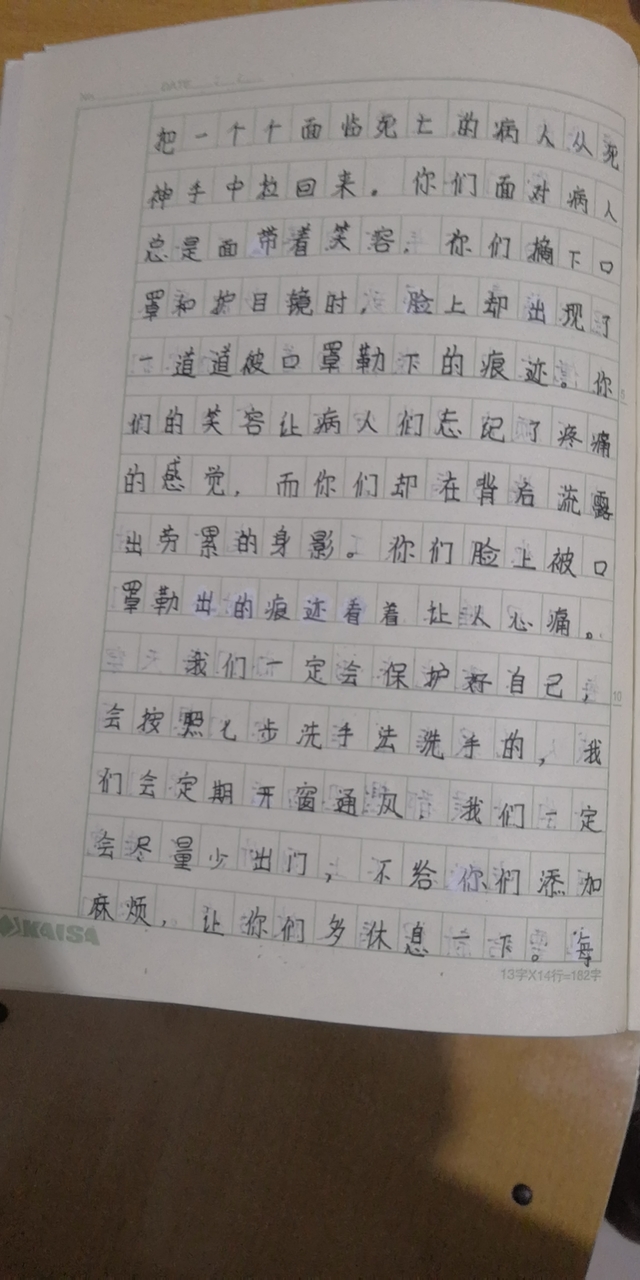 No. DATE
把一个个面临死亡的病人从死
神手中拉回来。你们面对病人
总是面带着笑容。你们摘下口
罩和护目镜时，脸上却出现了
一道道被口罩勒下的痕迹。你
们的笑容让病人们忘记了疼痛
的感觉，而你们却在背后流露
出劳累的身影。你们脸上被口
罩勒出的痕迹看着让人心痛。
我们一定会保护好自己，
会按照七步洗手法洗手的，我
们会定期开窗通风，我们一定
会尽量少出门，不给你们添加
麻烦，让你们多休息一下。每
5
10
KAISA
13字X14行=182字